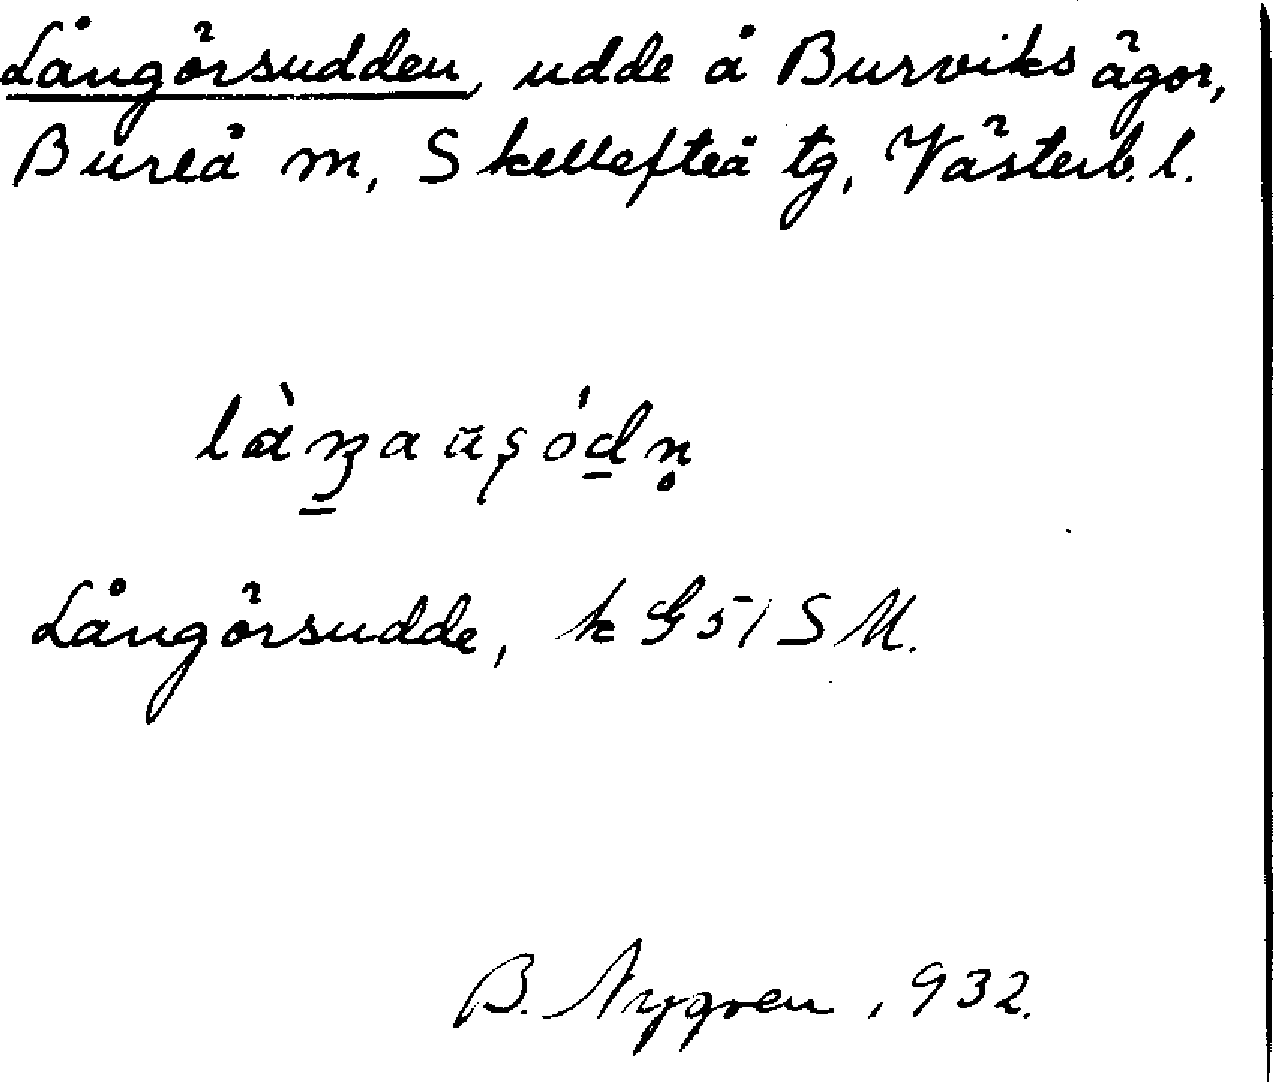 Långörsudden, udde å Burviks ägor,
Bureå m, Skellefteå tg, Västerb. l.
Långörsudde, k G51 S M.
B. Nygren, 932.